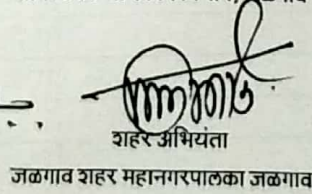 शहर अभियंता
जळगाव शहर महानगरपालका जळगाव